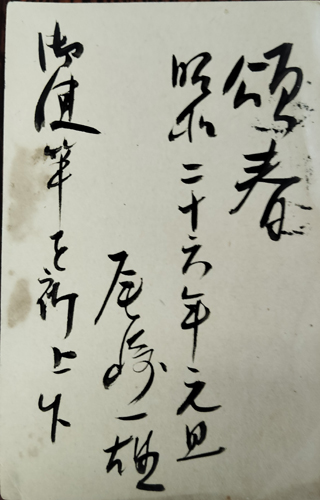 頌春
昭和二十六年元旦
尾崎一雄
御健筆を祈上候